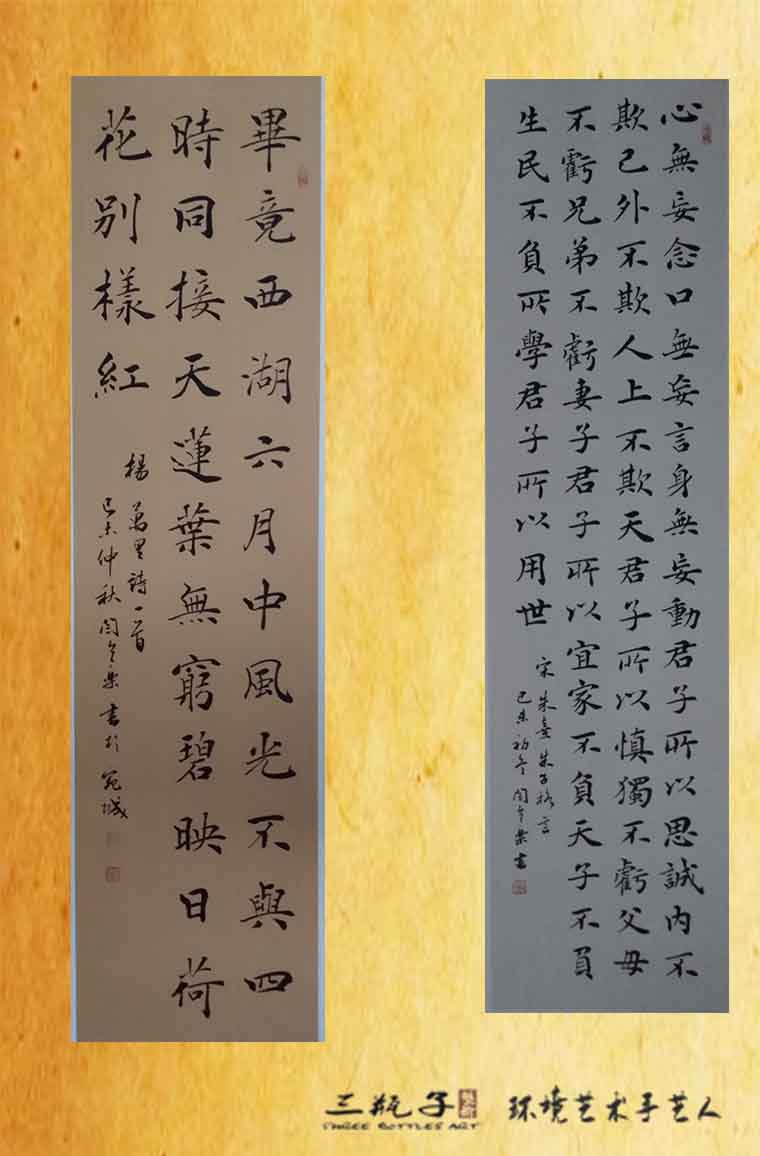 畢竟西湖六月中風光不與四
時同接天蓮葉無窮碧映日荷
花別樣紅
楊萬里詩一首
己未仲秋書於宛城
心無妄念口無妄言身無妄動君子所以思誠内不
欺己外不欺人上不欺天君子所以慎獨不虧父母
不虧兄弟不虧妻子君子所以宜家不負天子不負
生民不負所學君子所以用世
宋朱熹朱子格言
己未初冬書
三瓶子 环境艺术手艺人
THREE BOTTLES ART